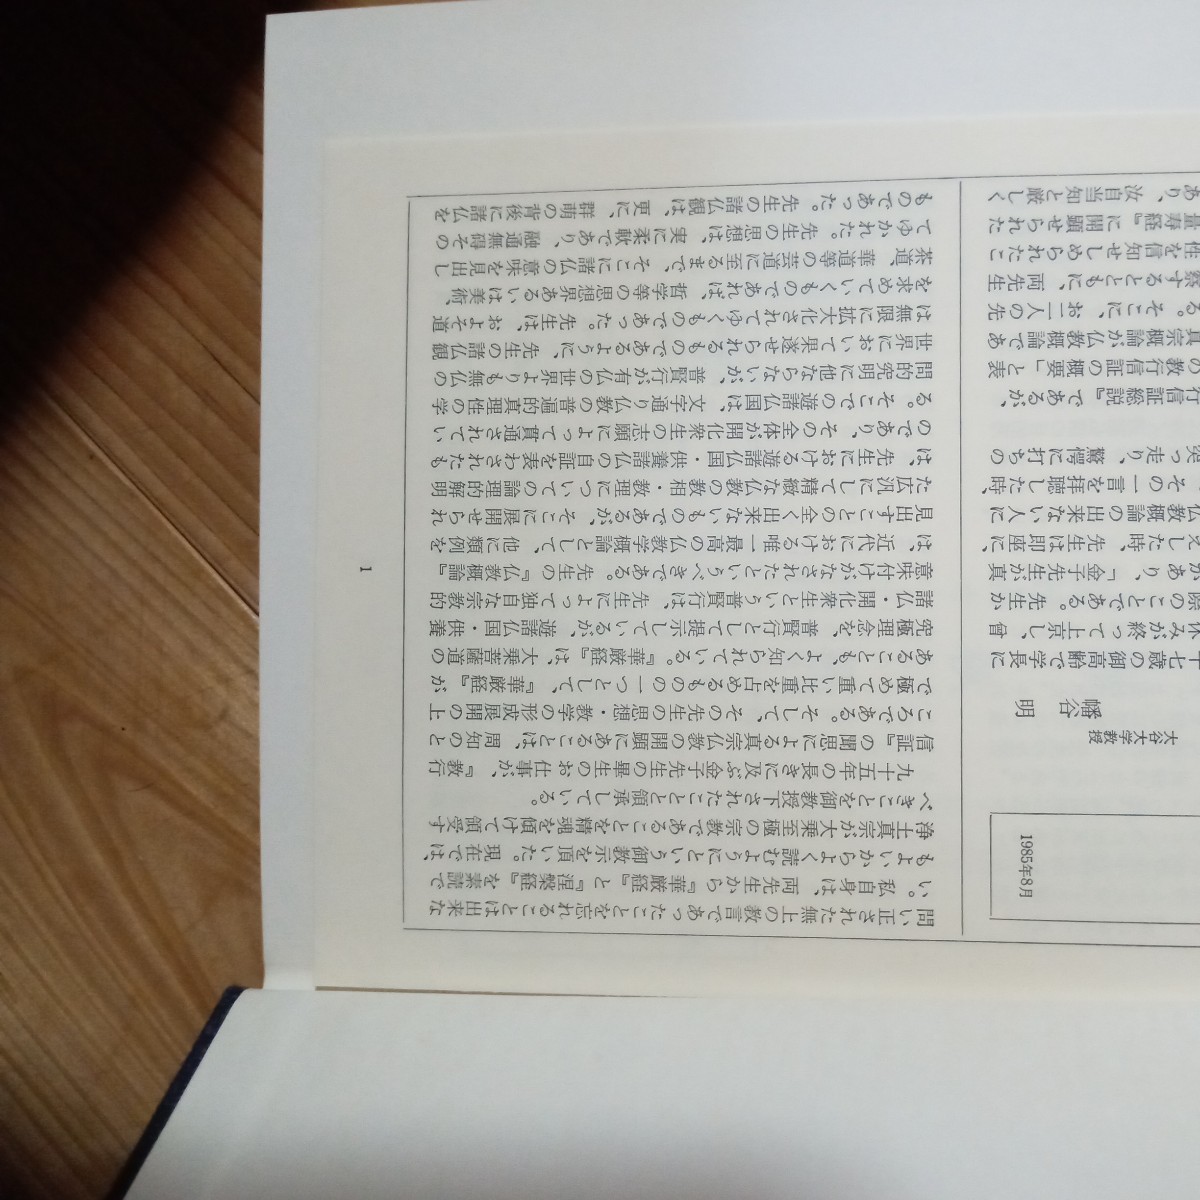 1985年8月
大谷大学教授
幡谷 明
十七歳の御高齢で学長に
休みが終って上京し、曾
際のことである。先生か
があり、「金子先生が真
えした時、先生は即座に、
仏教概論の出来ない人に
その一言を拝聴した時、
突っ走り、驚愕に打ちの
行信証総説』であるが、
の教行信証の概要」と表
真宗概論が仏教概論であ
る。そこに、お一人の先
察するとともに、両先生
性を信知せしめられたこ
量寿経』に開顕せられた
あり、汝自当知と厳しく
問い正された無上の教言であったことを忘れることは出来な
い。私自身は、両先生から『華厳経』と『涅槃経』を素読で
もよいからよく読むようにという御教示を頂いた。現在では、
浄土真宗が大乗至極の宗教であることを精魂を傾けて領受す
べきことを御教授下されたことと領承している。
九十五年の長きに及ぶ金子先生の畢生のお仕事が、『教行
信証』の聞思による真宗仏教の開顕にあることは、周知のと
ころである。そして、その先生の思想・教学の形成展開の上
で極めて重い比重を占めるものの一つとして、『華厳経』が
あることも、よく知られている。『華厳経』は、大乗菩薩道の
究極理念を、普賢行として提示しているが、遊諸仏国・供養
諸仏・開化衆生という普賢行は、先生によって独自な宗教的
意味付けがなされたというべきである。先生の『仏教概論』
は、近代における唯一最高の仏教学概論として、他に類例を
見出すことの全く出来ないものであるが、そこに展開せられ
た広汎にして精緻な仏教の教相・教理についての論理的解明
は、先生における遊諸仏国・供養諸仏の自証を表わされたも
のであり、その全体が開化衆生の志願によって貫通されてい
る。そこでの遊諸仏国は、文字通り仏教の普遍的真理性の学
問的究明に他ならないが、普賢行が有仏の世界よりも無仏の
世界において果遂せられるものであるように、先生の諸仏観
は無限に拡大化されてゆくものであった。先生は、およそ道
を求めていくものであれば、哲学等の思想界あるいは美術、
茶道、華道等の芸道に至るまで、そこに諸仏の意味を見出し
てゆかれた。先生の思想は、実に柔軟であり、融通無碍その
ものであった。先生の諸仏観は、更に、群萌の背後に諸仏を
1